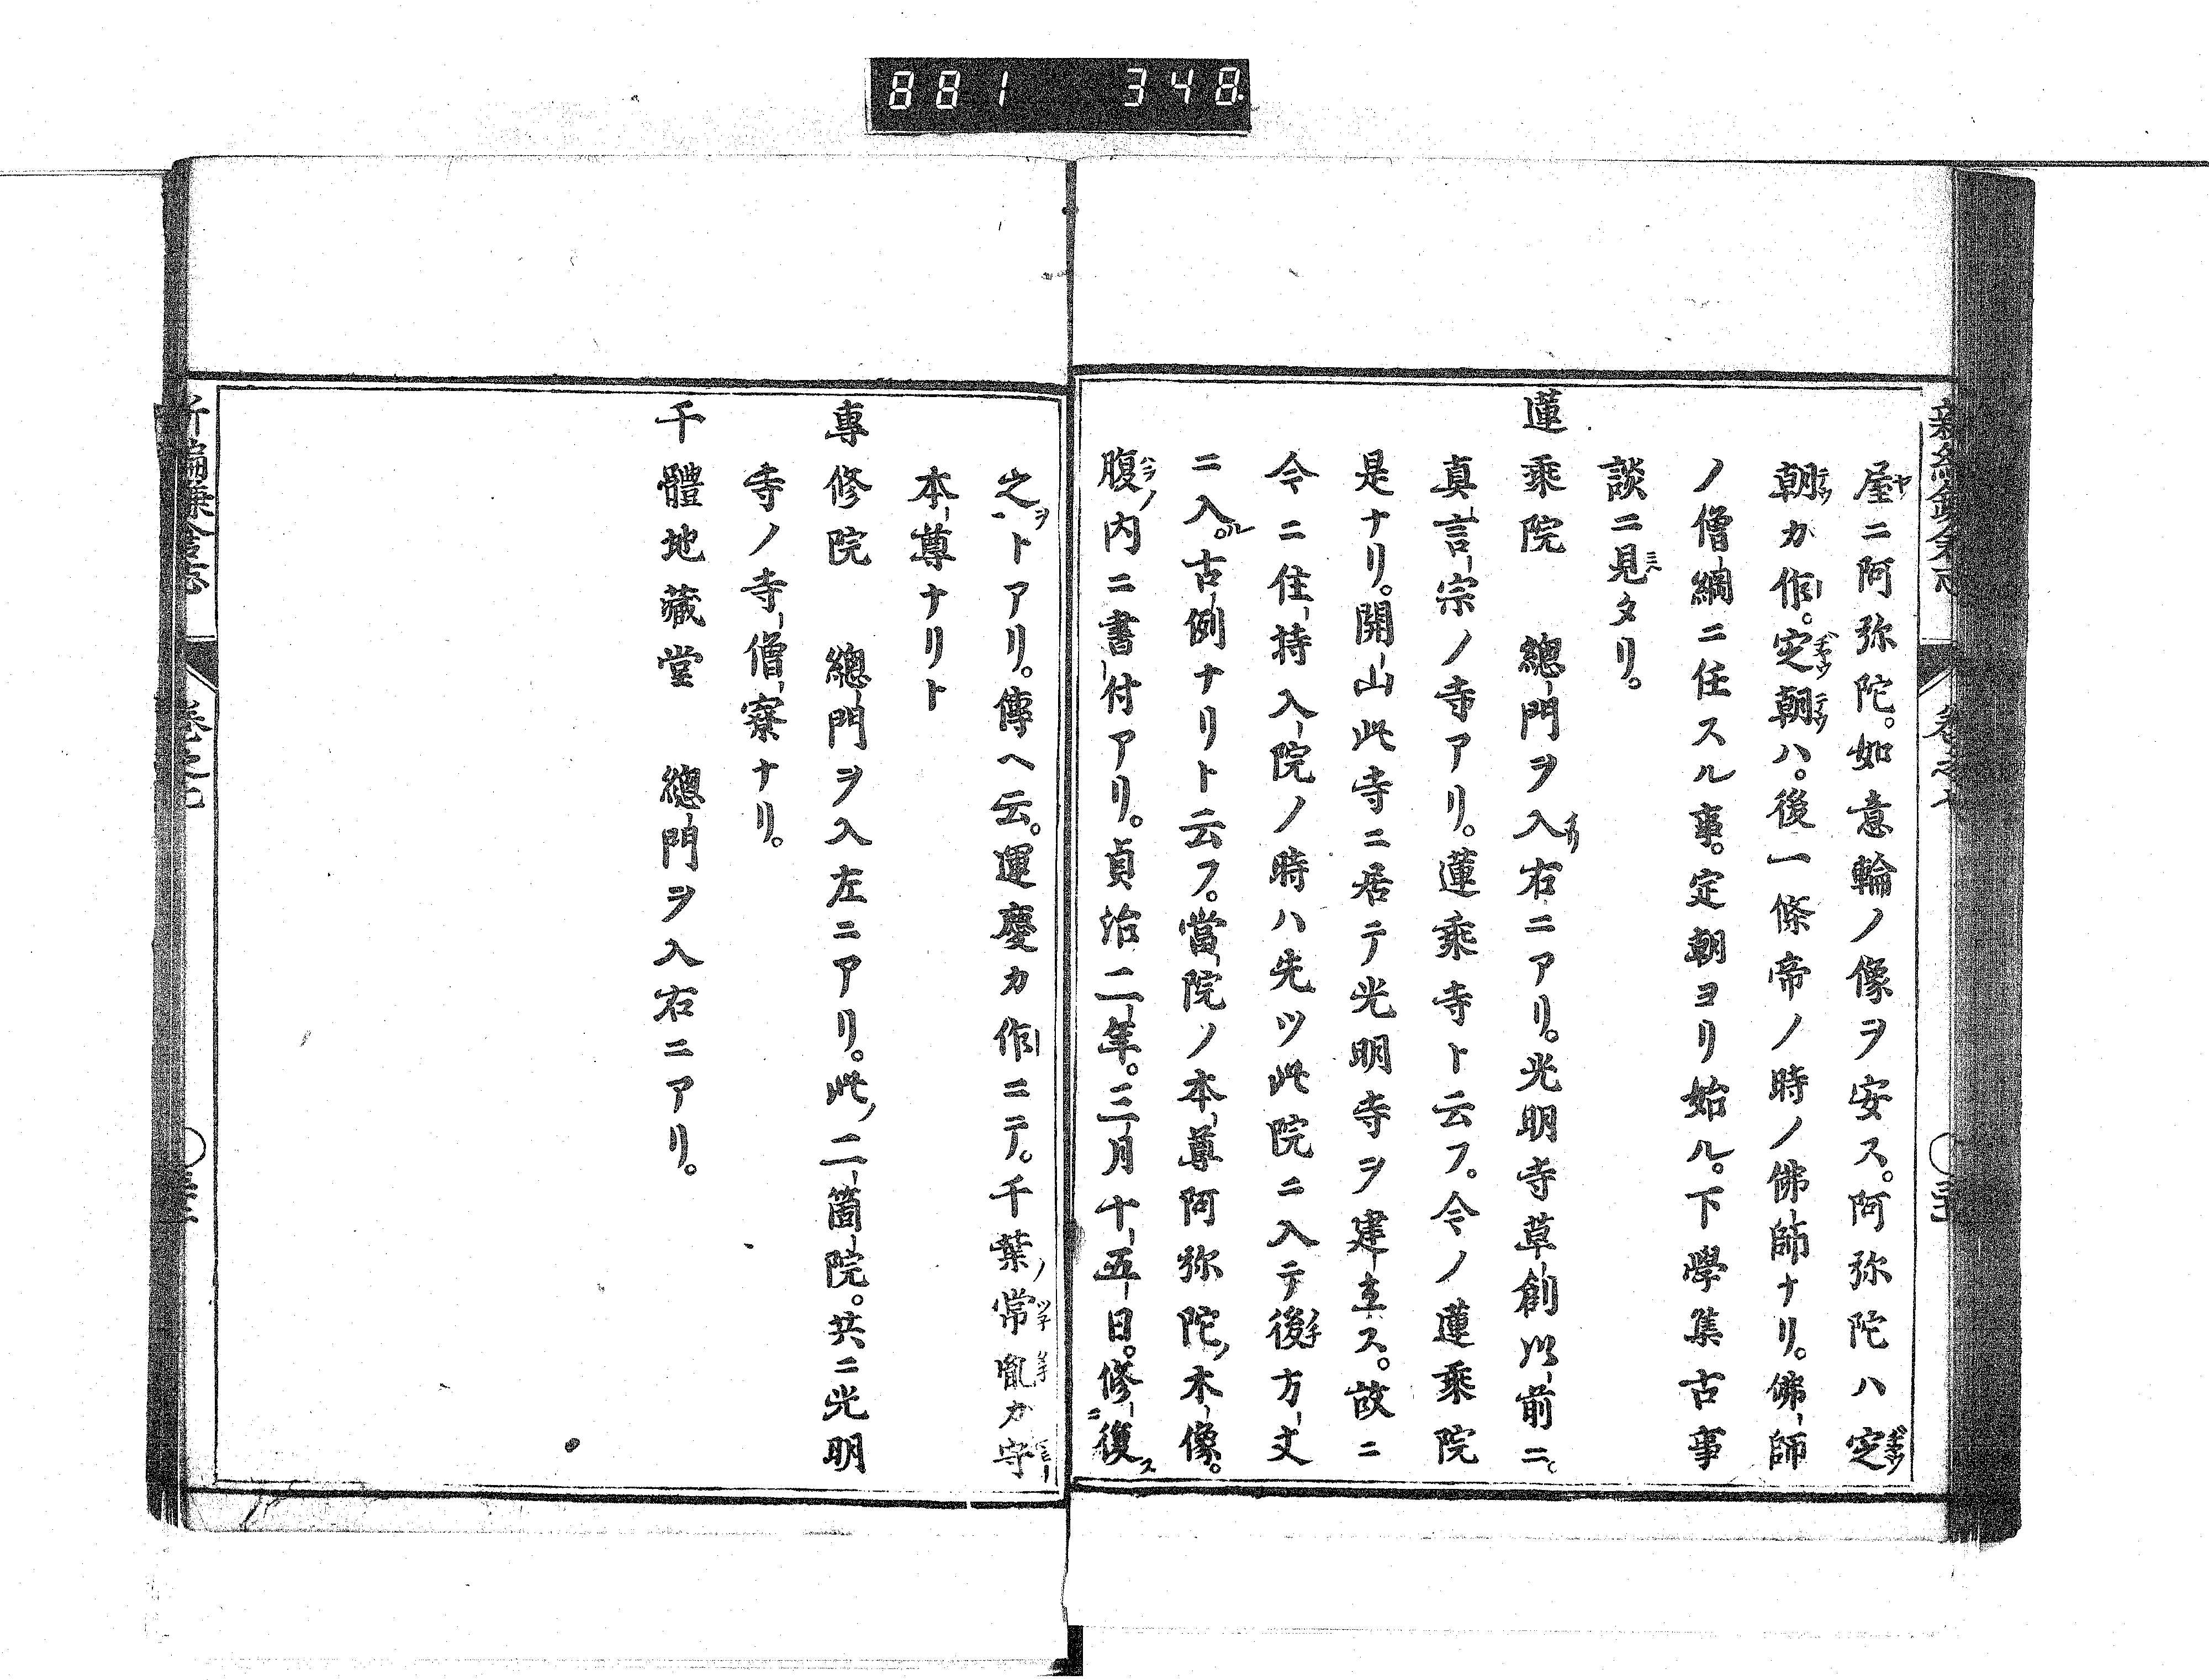 881 348
屋ニ阿弥陀。如意輪ノ像ヲ安ス。阿弥陀ハ定
朝カ作。定朝ハ。後一條帝ノ時ノ佛師ナリ。佛師
ノ僧綱ニ任スル事。定朝ヨリ始ル。下學集古事
談ニ見タリ。
蓮乘院 總門ヲ入右ニアリ。光明寺草創以前ニ。
真言宗ノ寺アリ。蓮乘寺ト云フ。今ノ蓮乘院
是ナリ。開山此寺ニ居テ光明寺ヲ建立ス。故ニ
今ニ住持入院ノ時ハ先ツ此院ニ入テ後方丈
ニ入。古例ナリト云フ。當院ノ本尊阿弥陀ノ木像。
腹ノ内ニ書付アリ。貞治二年。三月十五日。修復ス
之ヲトアリ。傳ヘ云。運慶カ作ニテ。千葉ノ常胤カ守
本尊ナリト
專修院 總門ヲ入左ニアリ。此ノ二箇院。共ニ光明
寺ノ寺僧寮ナリ。
千體地藏堂 總門ヲ入右ニアリ。
新編鎌倉志 卷之七